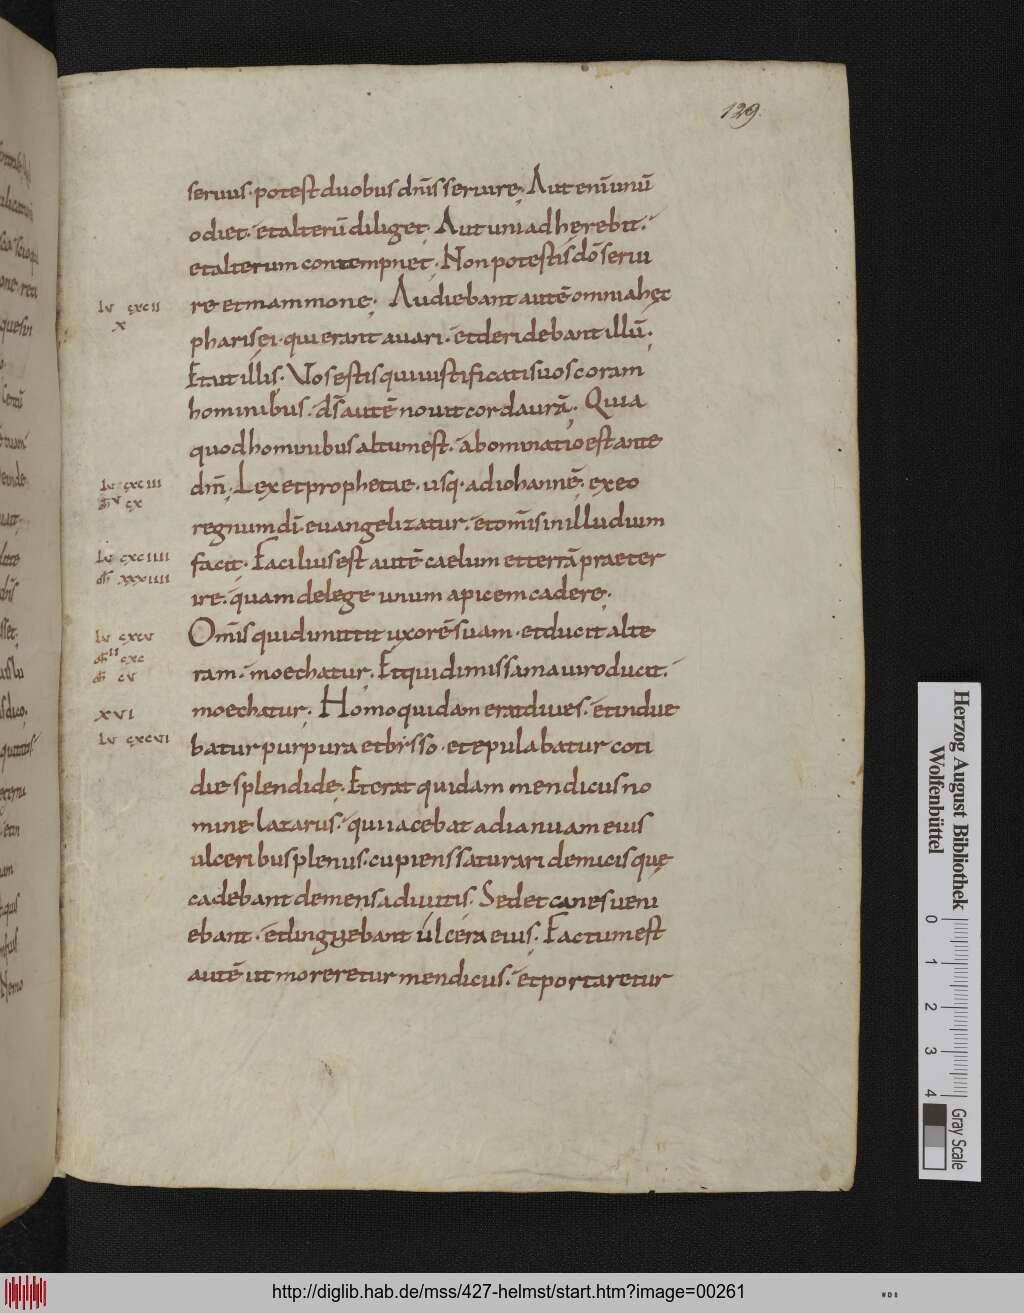 129.
seruus. potest duobus dn̄is seruire; Aut enī unū
odiet. et alterū diliget; Aut uni adherebit.
et alterum contempnet; Non potestis dō serui
re et mammonę; Audiebant autē omnia hęc
lv cxcii
x
pharisei. qui erant auari. et deridebant illū;
Et ait illis; Vos estis qui iustificatis uos coram
hominibus. d̄s autē nouit corda ur̄a; Quia
quod hominibus altum est. abominatio est ante
dm̄; Lex et prophetae. usq· ad iohannē; ex eo
lv cxciii
m̄ v cx
regnum dī euangelizatur. et om̄is in illud uim
facit; Facilius est autē caelum et terrā praeter
lv cxciiii
m̄ xxxiiii
ire. quam de lege unum apicem cadere;
Om̄is qui dimittit uxorē suam. et ducit alte
lv cxcv
m̄ ii cxc
m̄ cv
ram. moechatur; Et qui dimissam a uiro ducit.
moechatur; Homo quidam erat diues. et indue
xvi
lv cxcvi
batur purpura et bisso. et epulabatur coti
die splendide; Et erat quidam mendicus no
mine lazarus. qui iacebat ad ianuam eius
ulceribus plenus. cupiens saturari de micis quę
cadebant de mensa diuitis; Sed et canes ueni
ebant. et linguebant ulcera eius; Factum est
autē ut moreretur mendicus. et portaretur
Herzog August Bibliothek
Wolfenbüttel
0 1 2 3 4
Gray Scale
http://diglib.hab.de/mss/427-helmst/start.htm?image=00261